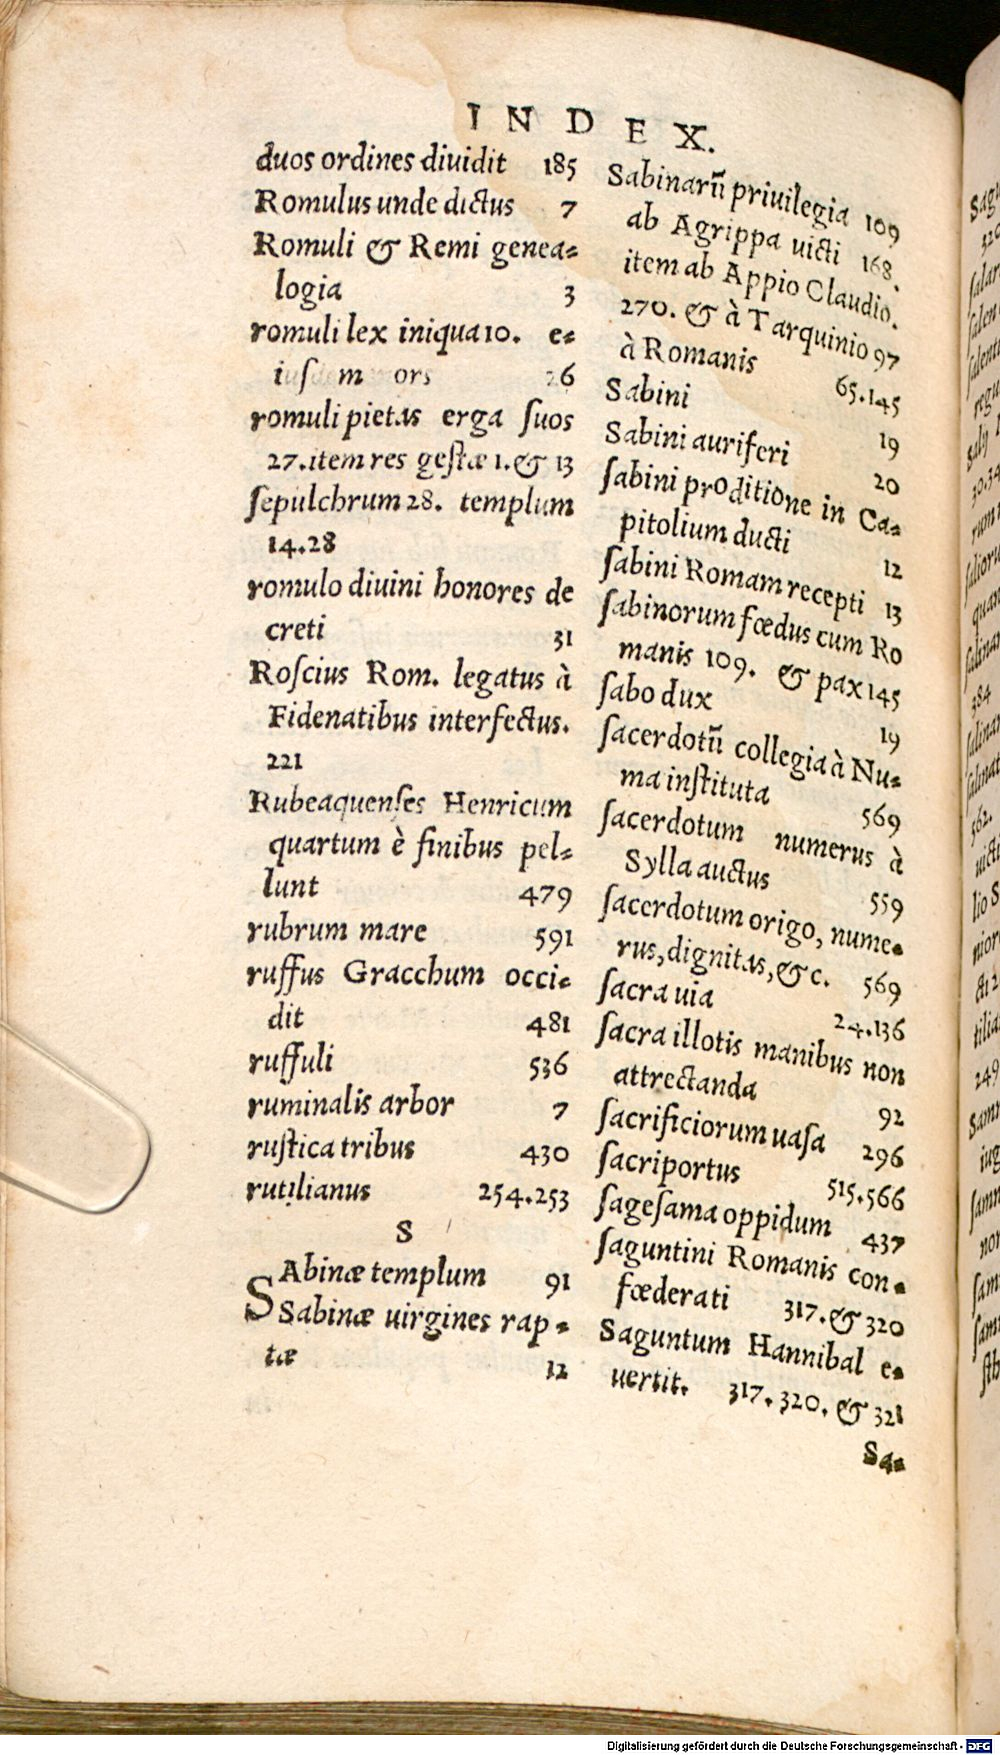 INDEX.
duos ordines diuidit 185
Romulus unde dictus 7
Romuli & Remi genea-
logia 3
romuli lex iniqua 10. e-
iusdem mors 26
romuli pietas erga suos
27. item res gestæ 1. & 13
sepulchrum 28. templum
14.28
romulo diuini honores de
creti 31
Roscius Rom. legatus à
Fidenatibus interfectus.
221
Rubeaquenses Henricum
quartum è finibus pel-
lunt 479
rubrum mare 591
ruffus Gracchum occi-
dit 481
ruffuli 536
ruminalis arbor 7
rustica tribus 430
rutilianus 254.253
S
SAbinæ templum 91
Sabinæ uirgines rap-
tæ 12
Sabinarū priuilegia 109
ab Agrippa uicti 168.
item ab Appio Claudio.
270. & à Tarquinio 97
à Romanis 65.145
Sabini 19
Sabini auriferi 20
sabini proditione in Ca-
pitolium ducti 12
sabini Romam recepti 13
sabinorum fœdus cum Ro
manis 109. & pax 145
sabo dux 19
sacerdotū collegia à Nu-
ma instituta 569
sacerdotum numerus à
Sylla auctus 559
sacerdotum origo, nume-
rus, dignitas, &c. 569
sacra uia 24.136
sacra illotis manibus non
attrectanda 92
sacrificiorum uasa 296
sacriportus 515.566
sagesama oppidum 437
saguntini Romanis con-
fœderati 317. & 320
Saguntum Hannibal e-
uertit. 317. 320. & 321
Sa-
Digitalisierung gefördert durch die Deutsche Forschungsgemeinschaft - DFG